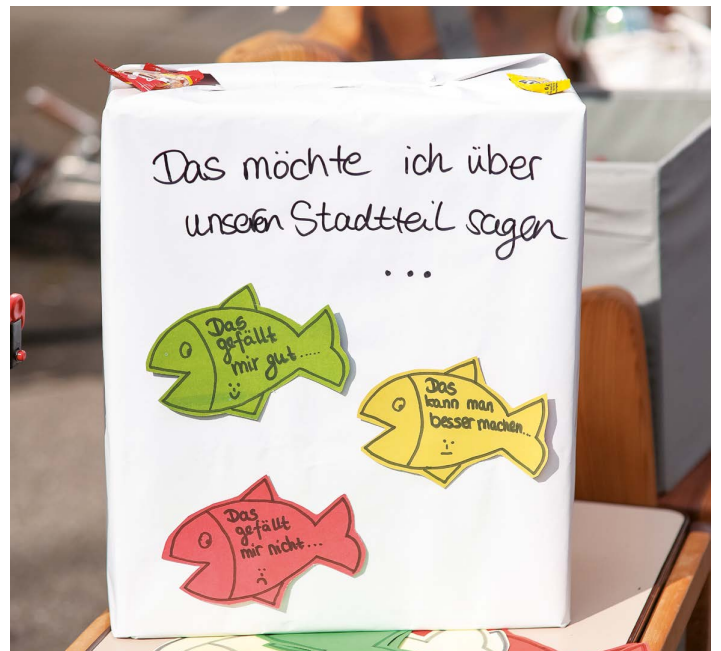 Das möchte ich über
unseren Stadtteil sagen
...
Das
gefällt
mir gut.....
Das
kann man
besser machen...
Das
gefällt
mir nicht...